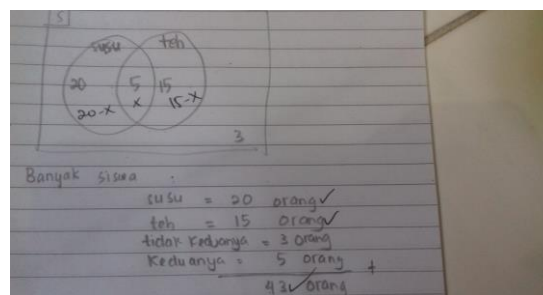 S
susu teh
20 5 15
20-x x 15-x
3
Banyak siswa :
susu = 20 orang✓
teh = 15 orang✓
tidak keduanya = 3 orang
keduanya = 5 orang +
43✓orang